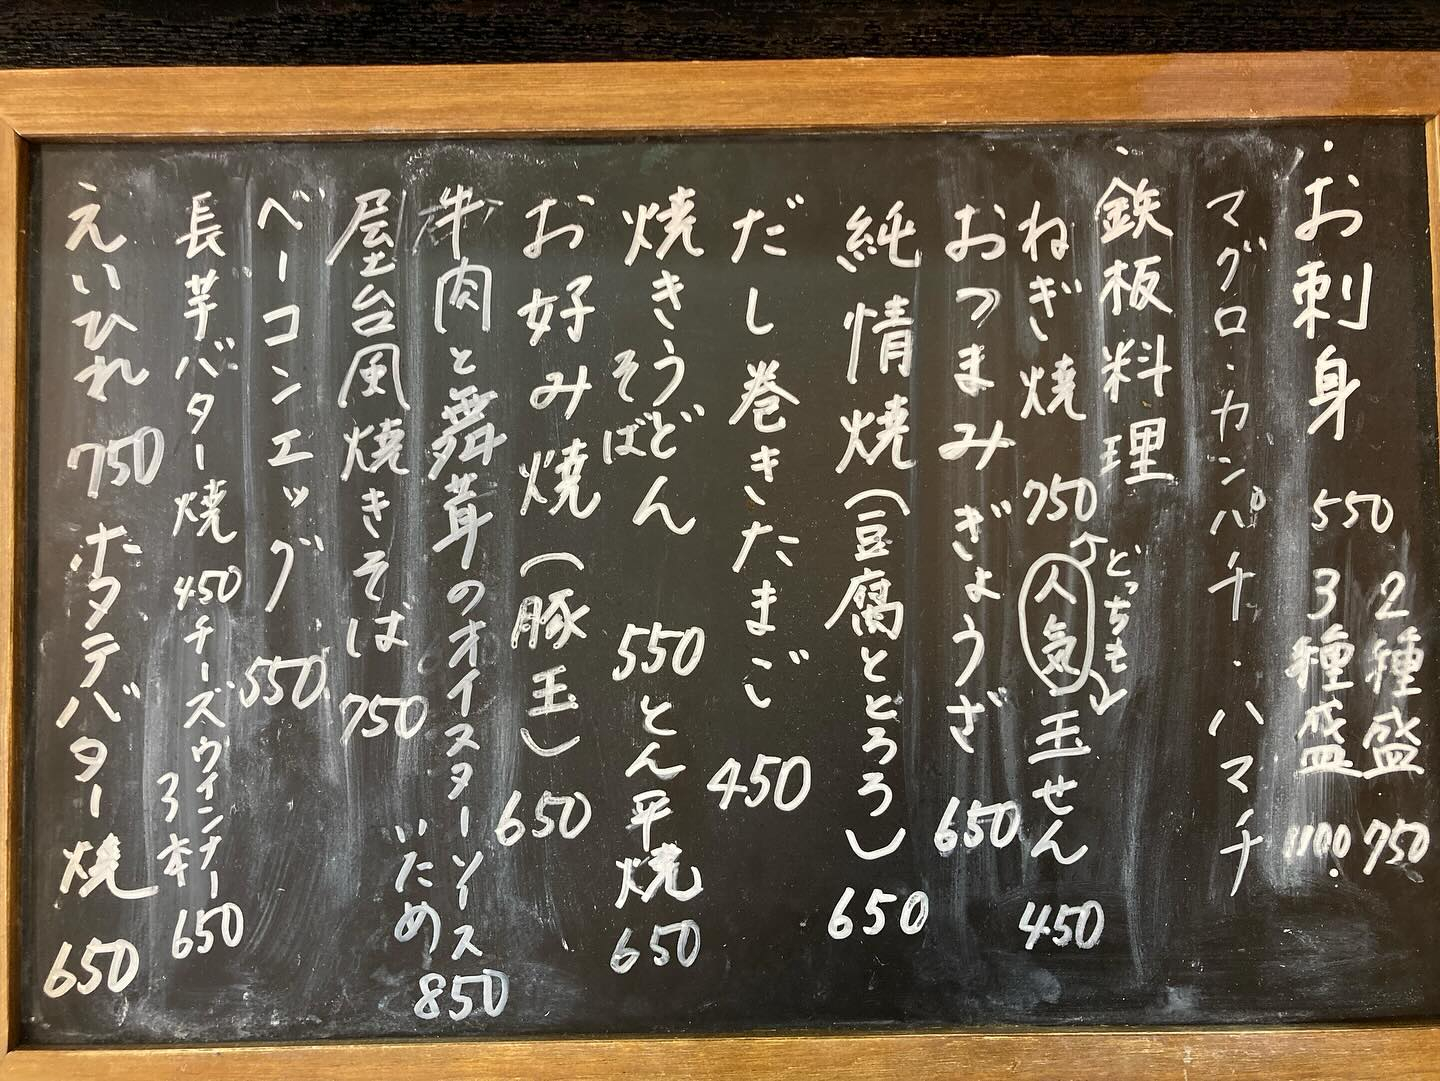 ・お刺身 550 2種盛 750
3種盛 1100.
マグロ・カンパチ・ハマチ
・鉄板料理
どっちも
ねぎ焼 750 人気 玉せん 450
おつまみぎょうざ 650
純情焼(豆腐ととろろ) 650
だし巻きたまご 450
焼きうどん 550 とん平焼 650
そば
お好み焼(豚玉) 650
牛肉と舞茸のオイスターソース
いため 850
屋台風焼きそば 750
ベーコンエッグ 550
長芋バター焼 450 チーズウインナー 650
3本
えいひれ 750 ホタテバター焼 650